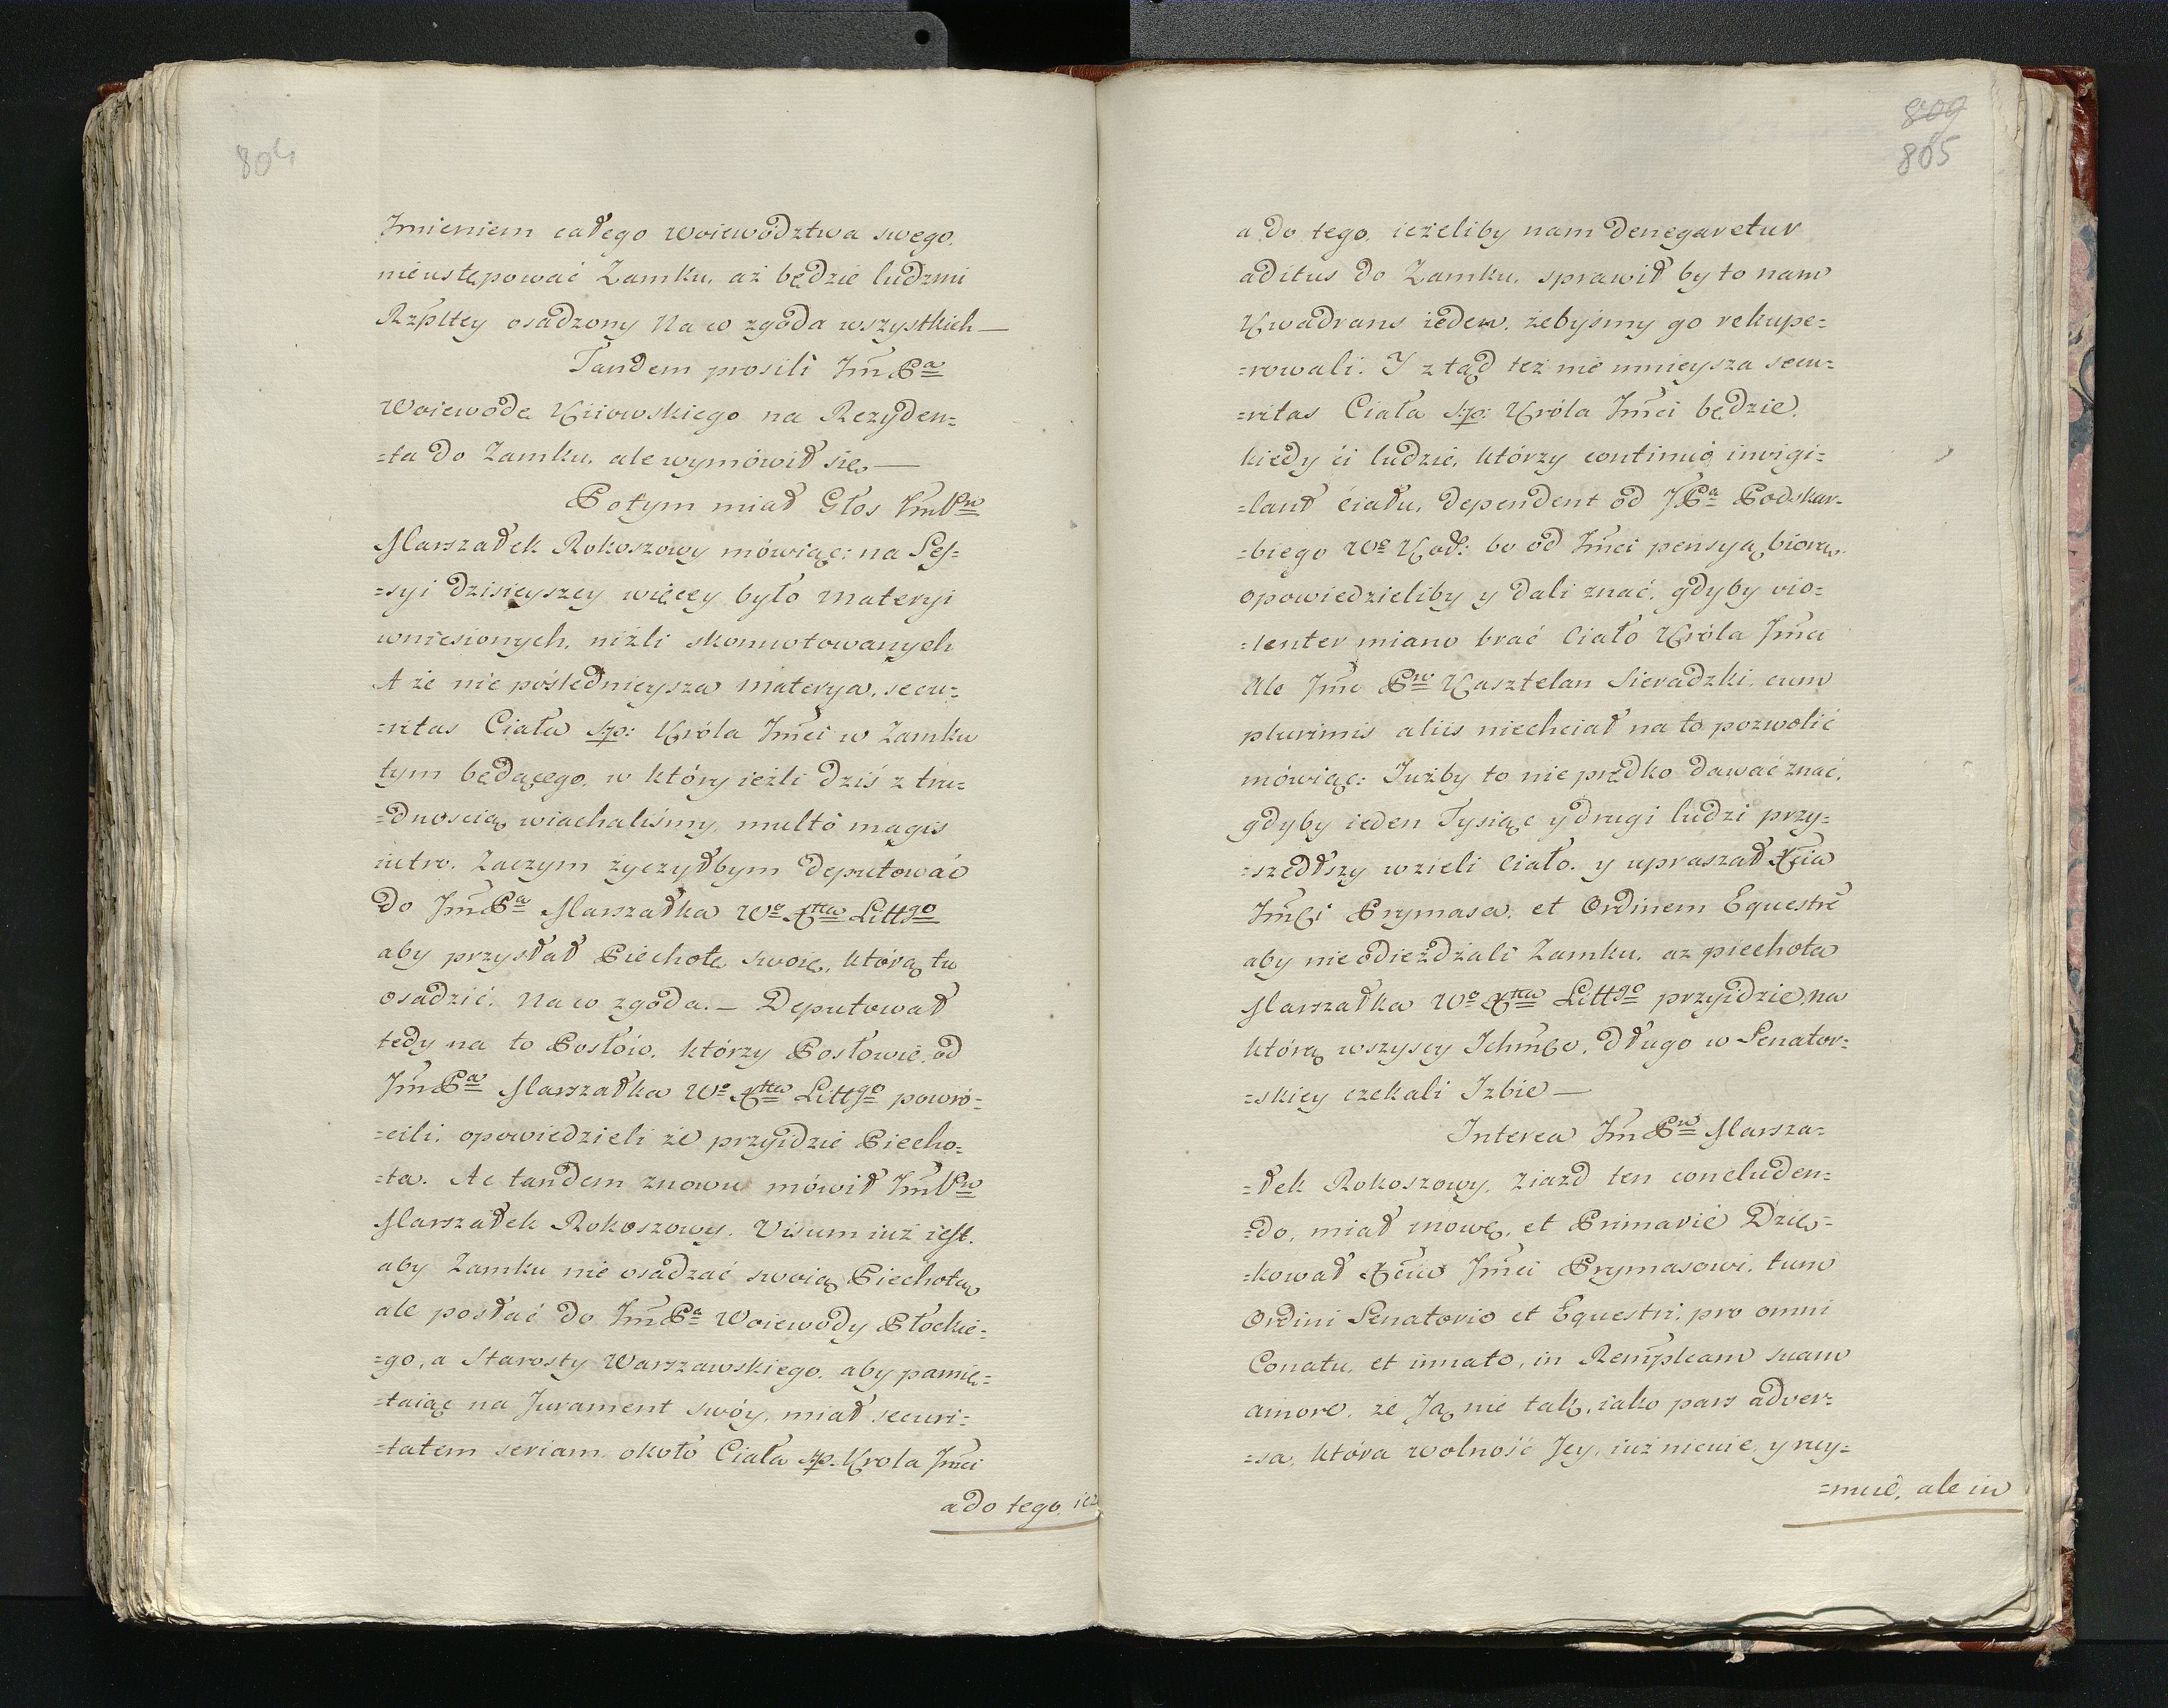 804
Imieniem całego Woiewodztwa swego,
nieustępować Zamku, aż będzie ludzmi
Rzpltey osadzony Na co zgoda wszystkich —
Tandem prosili Jm̃ Pa
Woiewodę Kiiowskiego na Rezyden=
=ta do Zamku, ale wymówił się —
Potym miał Głos JmPn
Marszałek Rokoszowy mówiąc: na Ses=
=syi dzisieyszey więcey było Materyi
wniesionych, niżli skonnotowanych
A że nie poślednieysza Materya, secu=
=ritas Ciała śp: Króla Jm̃ci w Zamku
tym będącego, w który ieżli dziś z tru=
=dnoscią wiachaliśmy, multò magis
iutro. Zaczym zyczyłbym deputować
do Jm̃Pa Marszałka Wo Xttwa Littgo
aby przysłał Piechotę swoię, którą tu
osadzić. Na co zgoda. — Deputował
tedy na to Posłów, którzy Posłowie, od
Jm̃Pa Marszałka Wo Xttwa Littgo powró=
=cili, opowiedzieli że przyidzie Piecho=
=ta. Ac tandem znowu mówił JmPn
Marszałek Rokoszowy. Visum iuż iest.
aby Zamku nie osadzać swoią Piechotą,
ale posłać do Jm̃Pa Woiewody Płockie=
=go, a Starosty Warszawskiego, aby pamię=
=taiąc na Jurament swóy, miał securi=
=tatem seriam około Ciała śp. Krola Jm̃ci
a do tego, ież
809
805
a do tego, ieżeliby nam denegaretur
aditus do Zamku, sprawił by to nam
Kwadrans ieden, żebyśmy go rekupe=
=rowali. I ztąd też nie mnieysza secu=
=ritas Ciała śp: Króla Jm̃ci będzie,
kiedy ci ludzie, którzy continuò invigi=
=lant ciału, dependent od JPa Podskar=
=biego Wo Kod: bo od Jm̃ci pensyą biorą,
opowiedzieliby y dali znać, gdyby vio=
=lenter miano brać Ciało Króla Jm̃ci
Ale Jmc Pn Kasztelan Sieradzki, cum
plurimis aliis niechciał na to pozwolić
mówiąc: Iużby to nie prędko dawać znać,
gdyby ieden Tysiąc y drugi ludzi przy=
=szedłszy wzieli Ciało. y upraszał Xcia
Jm̃ci Prymasa, et Ordinem Equestrẽ
aby nie odieżdżali Zamku, az piechota
Marszałka Wo Xttwa Littgo przyidzie, na
którą wszyscy Ichm̃co, długo w Senator=
=skiey czekali Izbie —
Interea Jm̃ Pn Marsza=
=łek Rokoszowy, Ziazd ten concluden=
=do, miał mowę, et Primariè Dzię=
=kował Xciu Jm̃ci Prymasowi, tum
Ordini Senatorio et Equestri, pro omni
Conatu, et innato, in Rempleam suam
amore, że Ją nie tak, iako pars adver=
=sa, która wolność Jey, iuż niewie, y rey=
=muie, ale in